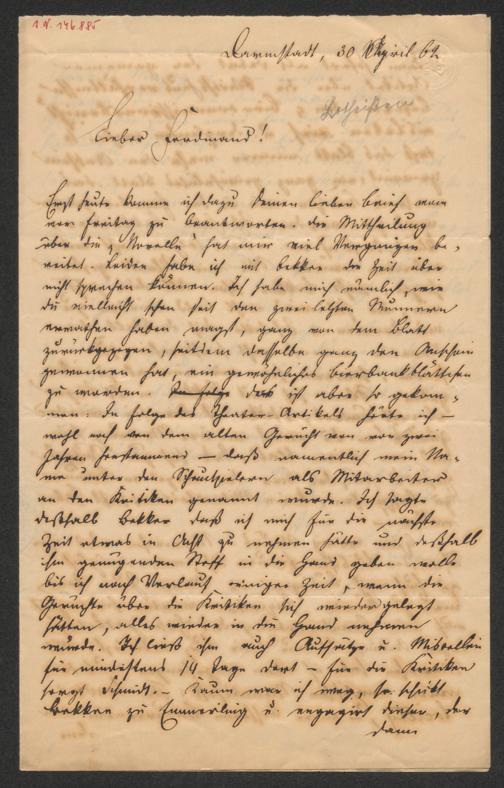 I.N. 146.885
Darmstadt, 30 April 62
Lotheißen
Lieber Ferdinand!
Erst heute komme ich dazu Deinen lieben Brief vom
vor Freitag zu beantworten. Die Mittheilung
über die „Novelle" hat mir viel Vergnügen be-
reitet. Leider habe ich mit Bekker die Zeit über
nicht sprechen können. Ich habe mich nämlich, wie
du vielleicht schon seit den zwei letzten Nummern
errathen haben magst, ganz von dem Blatt
zurückgezogen, seitdem dasselbe ganz den Anschein
gewonnen hat, ein gewöhnliches Bierbankblättchen
zu werden. In Folge das ist aber so gekom-
men: In Folge des Theater-Artikels hörte ich –
wohl noch von dem alten Gerücht von vor zwei
Jahren herstammend – daß namentlich mein Na-
me unter den Schauspielern als Mitarbeiter
an den Kritiken genannt wurde. Ich sagte
deßhalb Bekker daß ich mich für die nächste
Zeit etwas in Acht zu nehmen hätte und deßhalb
ihm genügenden Stoff in die Hand geben wolle
bis ich nach Verlauf einiger Zeit, wenn die
Gerüchte über die Kritiken sich wieder gelegt
hätten, alles wieder in die Hand nehmen
würde. Ich ließ ihm auch Aufsätze u. Miscellen
für mindestens 14 Tage dort – für die Kritiken
sorgt Schmidt. – Kaum war ich weg, so schickt
Bekker zu Emmerling u. engagirt diesen, der
dann